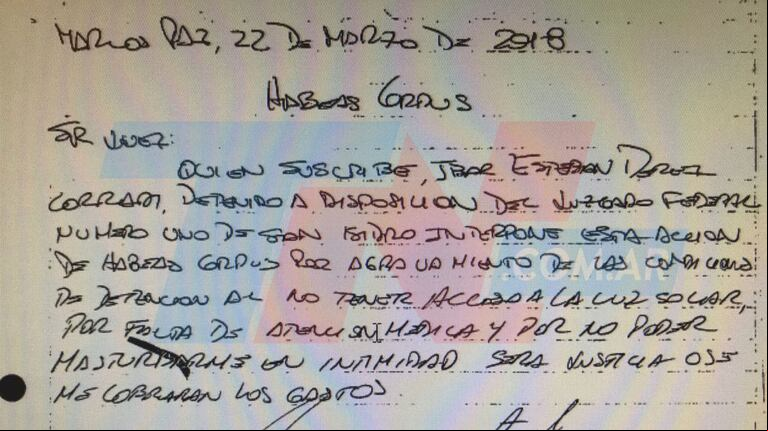 MARCOS PAZ, 22 DE MARZO DE 2918
HABEAS CORPUS
SR JUEZ:
QUIEN SUSCRIBE, IBAR ESTEBAN PEREZ
CORRADI, DETENIDO A DISPOSICION DEL JUZGADO FEDERAL
NUMERO UNO DE SAN ISIDRO INTERPONE ESTA ACCION
DE HABEAS CORPUS POR AGRAVAMIENTO DE LAS CONDICIONES
DE DETENCION AL NO TENER ACCESO A LA LUZ SOLAR,
POR FALTA DE ATENCION MEDICA Y POR NO PODER
MASTURBARME EN INTIMIDAD SERA JUSTICIA O SE
ME COBRARAN LOS GASTOS.
TN
.COM.AR